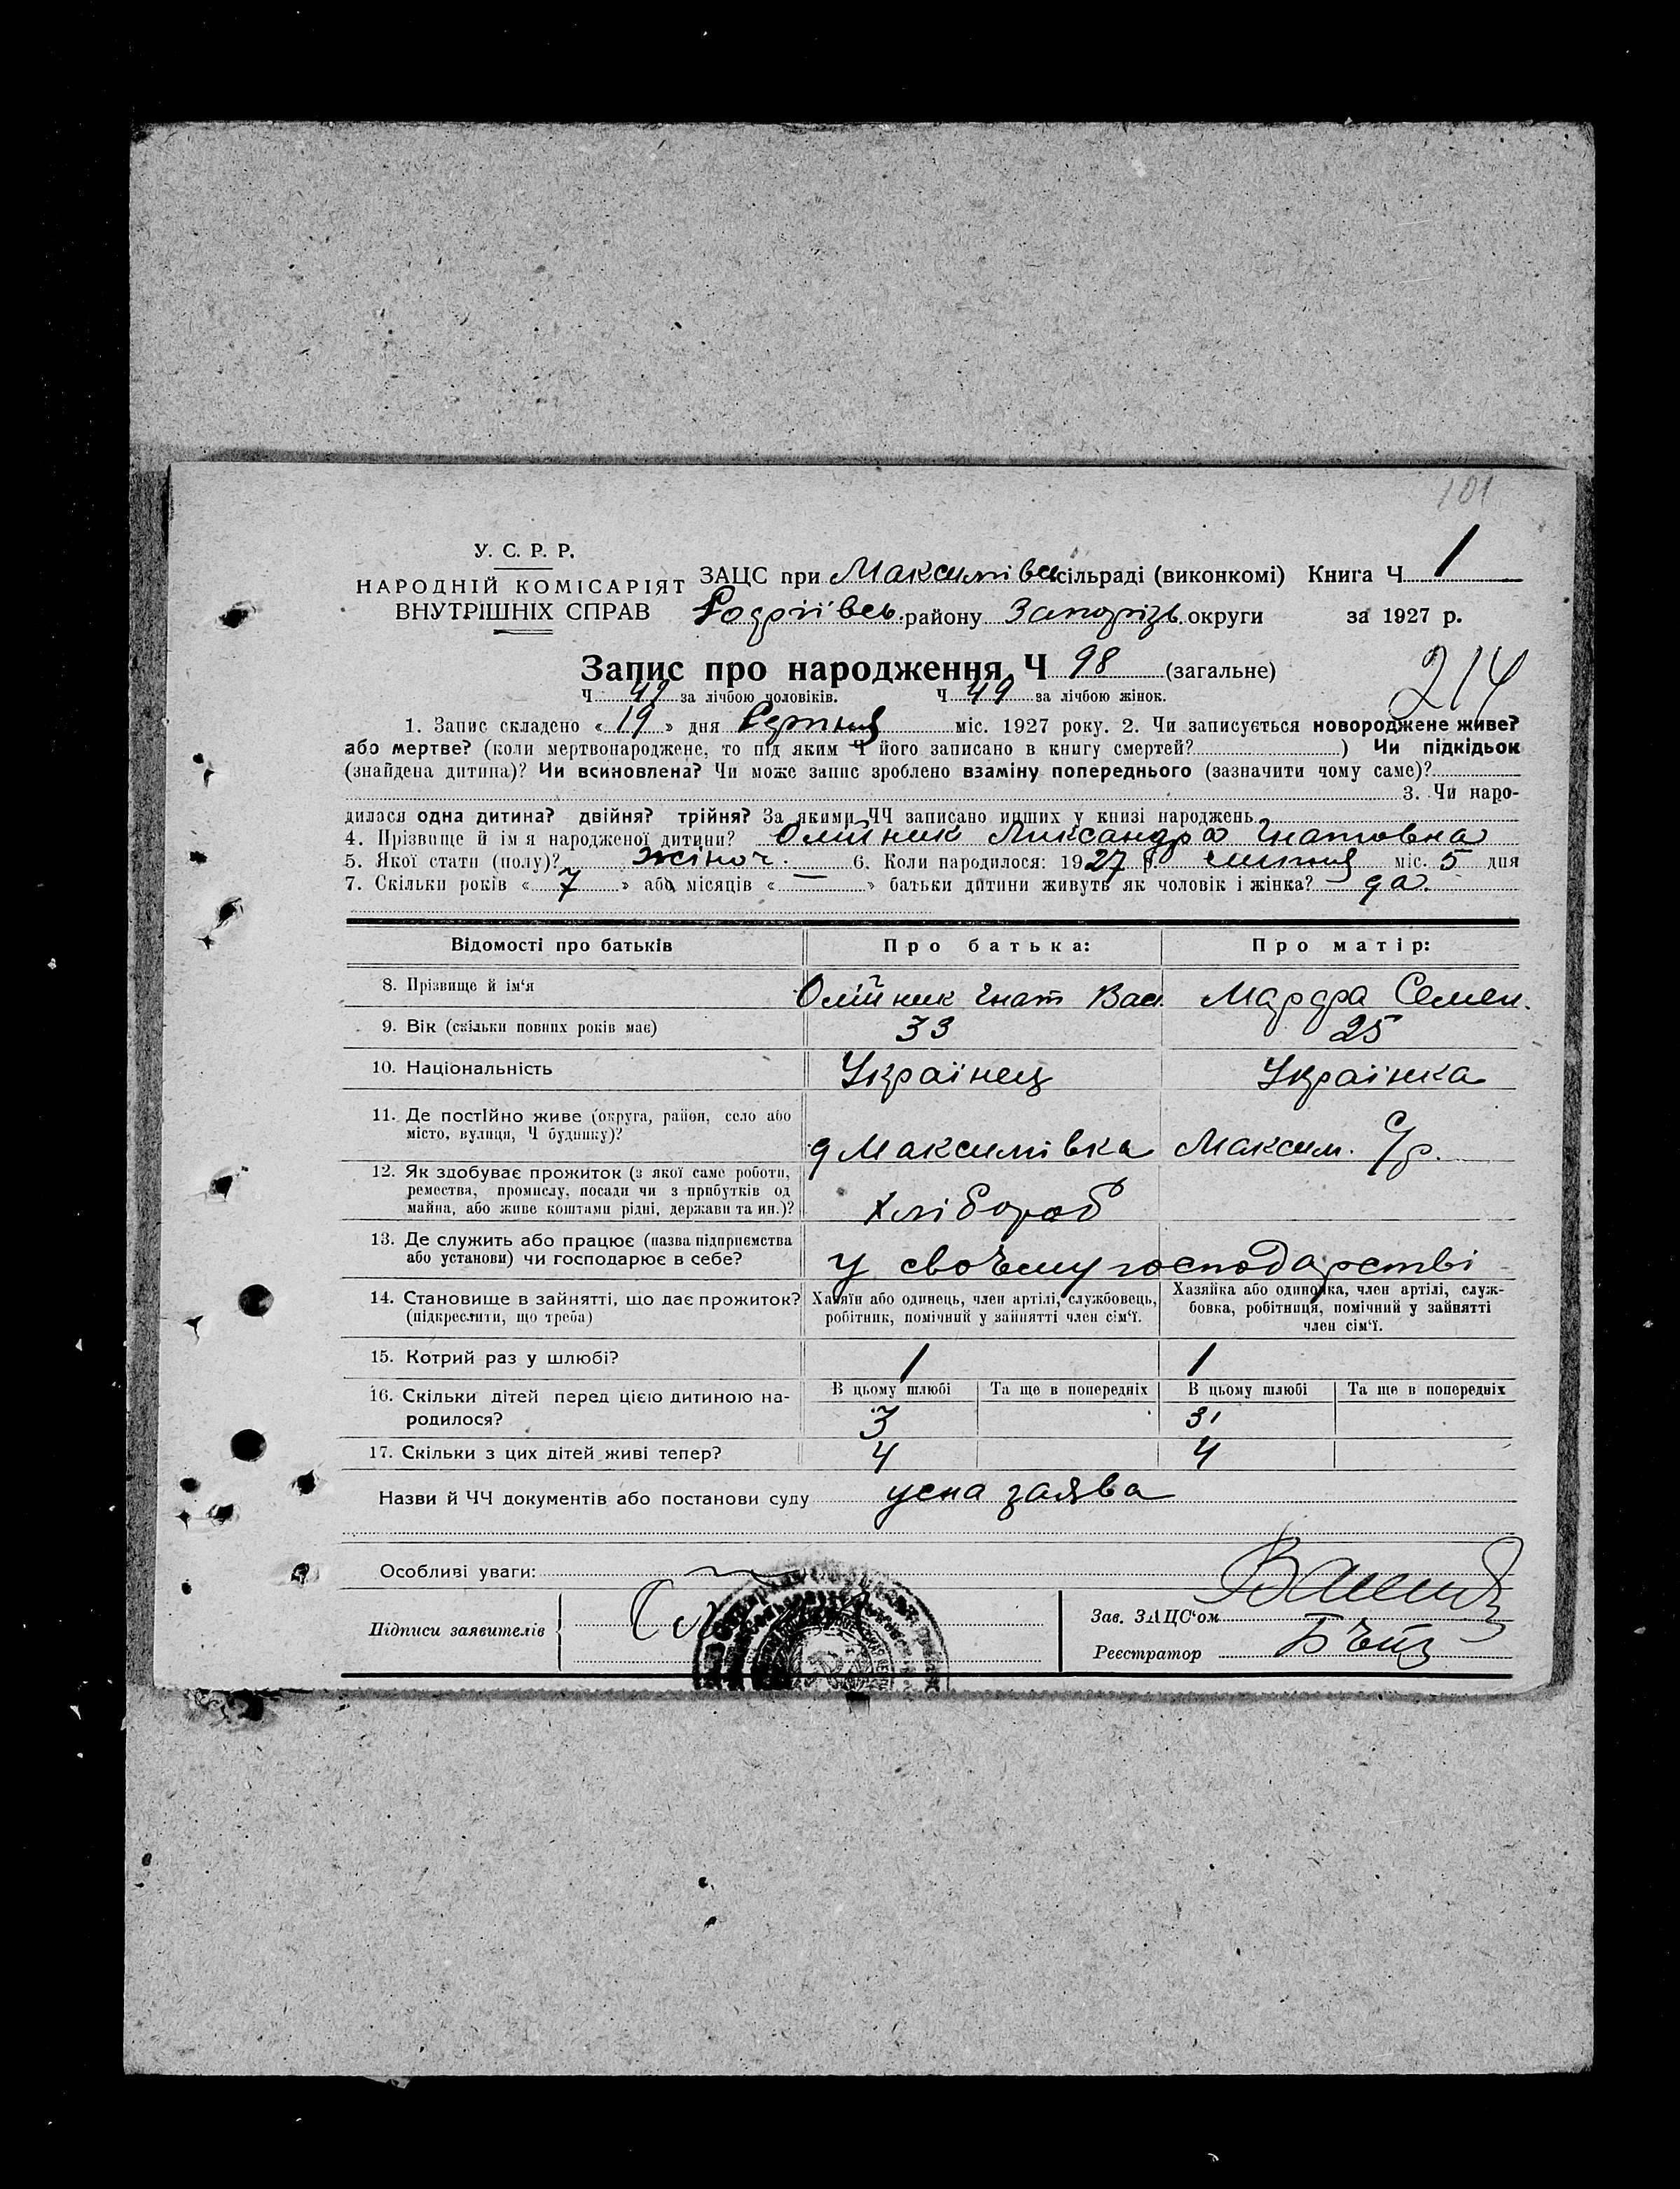 101
У. С. Р. Р.
НАРОДНІЙ КОМІСАРІЯТ
ВНУТРІШНІХ СПРАВ
ЗАЦС при Максимівсь сільраді (виконкомі) Книга Ч. 1
району Запорізь. округи за 1927 р.
Запис про народження Ч 98 (загальне)
214
Ч 49 за лічбою чоловіків. Ч 49 за лічбою жінок.
1. Запис складено « 19 » дня Серпня міс. 1927 року. 2. Чи записується новороджене живе?
або мертве? (коли мертвонароджене, то під яким Ч його записано в книгу смертей?) Чи підкідьок
(знайдена дитина)? Чи всиновлена? Чи може запис зроблено взаміну попереднього (зазначити чому саме)?
3. Чи наро-
дилася одна дитина? двійня? трійня? За якими ЧЧ записано инших у книзі народжень
4. Прізвище й ім'я народженої дитини? Олійник Ликсандра Гнатовна
5. Якої стати (полу)? жіноч. 6. Коли народилося: 1927 р. липня міс. 5 дня
7. Скільки років « 7 » або місяців « — » батьки дитини живуть як чоловік і жінка? да.
Відомості про батьків Про батька: Про матір:
8. Прізвище й ім'я Олійник Гнат Вас. Мардра Семен.
9. Вік (скільки повних років має) 33 25
10. Національність Українец Українка
11. Де постійно живе (округа, район, село або
місто, вулиця, Ч будинку)? д Максимівка Максим. С/р.
12. Як здобуває прожиток (з якої саме роботи,
ремества, промислу, посади чи з прибутків од
майна, або живе коштами рідні, держави та ин.)? Хлібороб
13. Де служить або працює (назва підприємства
або установи) чи господарює в себе? у своъму господарстві
14. Становище в зайнятті, що дає прожиток? Хазяїн або одинець, член артілі, службовець, Хазяйка або одиночка, член артілі, служ-
(підкреслити, що треба) робітник, помічний у зайнятті член сім'ї. бовка, робітниця, помічний у зайнятті
член сім'ї.
15. Котрий раз у шлюбі? 1 1
16. Скільки дітей перед цією дитиною на- В цьому шлюбі Та ще в попередніх В цьому шлюбі Та ще в попередніх
родилося? 3 3
17. Скільки з цих дітей живі тепер? 4 4
Назви й ЧЧ документів або постанови суду усна заява
Особливі уваги:
Підписи заявителів
Зав. ЗАЦС'ом
Реєстратор